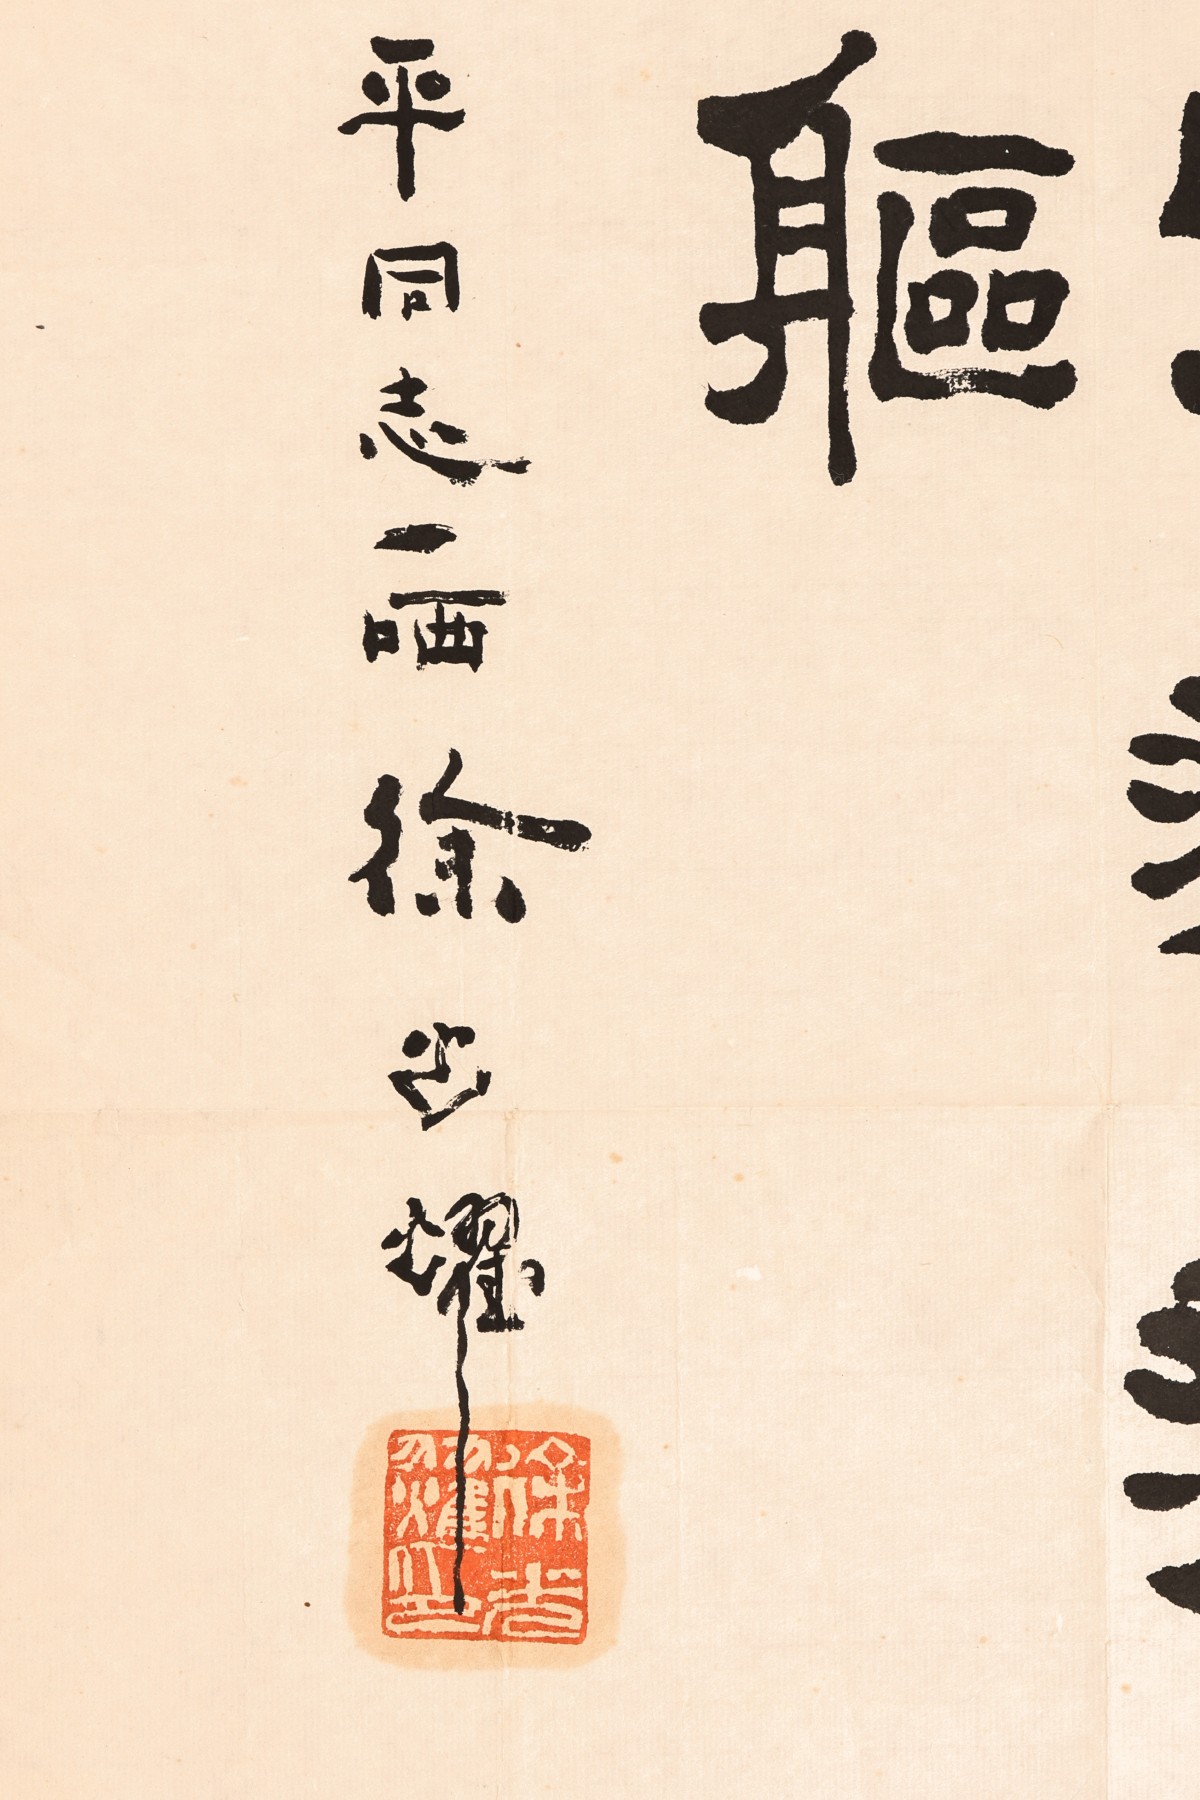 軀
平同志一哂徐光耀
徐光
耀印